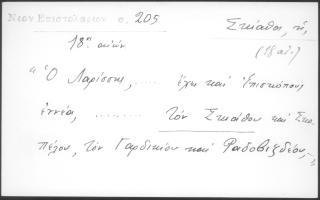 Νεον Επιστολαριον σ. 205
Σκίαθος, ἡ,
18ος αἰών
(18 αἰ.)
"Ὁ Λαρίσσης, ...... ἔχει καὶ Ἐπισκόπους
ἐννέα, ........ τὸν Σκιάθου καὶ Σκο
πέλου, τὸν Γαρδικίου καὶ Ραδοβιζδέου,